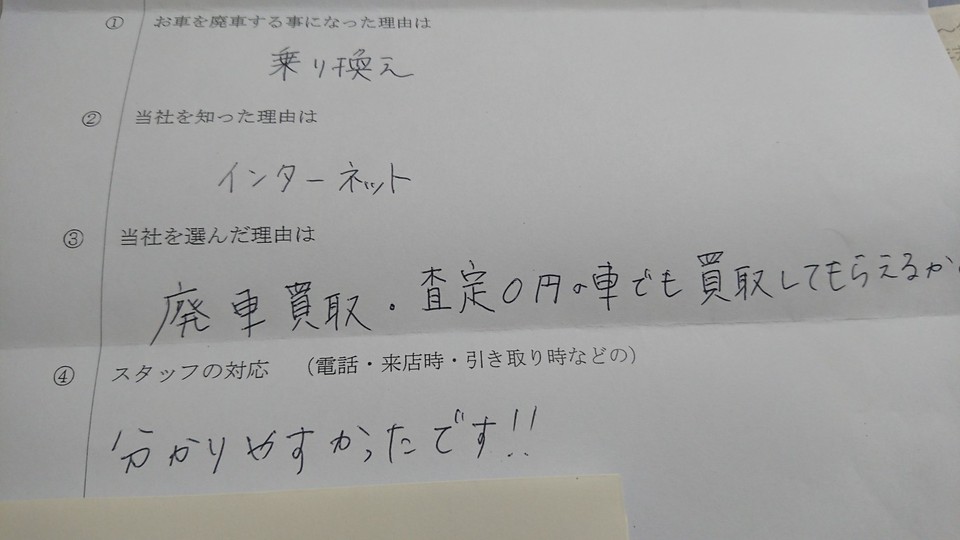 ① お車を廃車する事になった理由は
乗り換え
② 当社を知った理由は
インターネット
③ 当社を選んだ理由は
廃車買取・査定0円の車でも買取してもらえるか
④ スタッフの対応 (電話・来店時・引き取り時などの)
分かりやすかったです!!